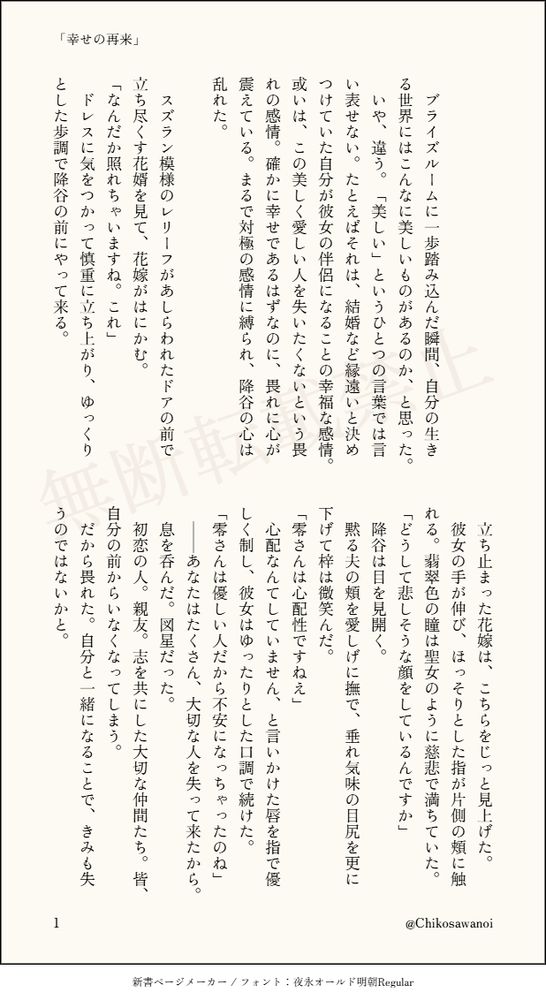 「幸せの再来」
ブライズルームに一歩踏み込んだ瞬間、自分の生き
る世界にはこんなに美しいものがあるのか、と思った。
いや、違う。「美しい」というひとつの言葉では言
い表せない。たとえばそれは、結婚など縁遠いと決め
つけていた自分が彼女の伴侶になることの幸福な感情。
或いは、この美しく愛しい人を失いたくないという畏
れの感情。確かに幸せであるはずなのに、畏れに心が
震えている。まるで対極の感情に縛られ、降谷の心は
乱れた。
スズラン模様のレリーフがあしらわれたドアの前で
立ち尽くす花婿を見て、花嫁がはにかむ。
「なんだか照れちゃいますね。これ」
ドレスに気をつかって慎重に立ち上がり、ゆっくり
とした歩調で降谷の前にやって来る。
立ち止まった花嫁は、こちらをじっと見上げた。
彼女の手が伸び、ほっそりとした指が片側の頬に触
れる。翡翠色の瞳は聖女のように慈悲で満ちていた。
「どうして悲しそうな顔をしているんですか」
降谷は目を見開く。
黙る夫の頬を愛しげに撫で、垂れ気味の目尻を更に
下げて梓は微笑んだ。
「零さんは心配性ですねえ」
心配なんてしていません、と言いかけた唇を指で優
しく制し、彼女はゆったりとした口調で続けた。
「零さんは優しい人だから不安になっちゃったのね」
――あなたはたくさん、大切な人を失って来たから。
息を呑んだ。図星だった。
初恋の人。親友。志を共にした大切な仲間たち。皆、
自分の前からいなくなってしまう。
だから畏れた。自分と一緒になることで、きみも失
うのではないかと。
無断転載禁止
1
@Chikosawanoi
新書ページメーカー / フォント：夜永オールド明朝Regular